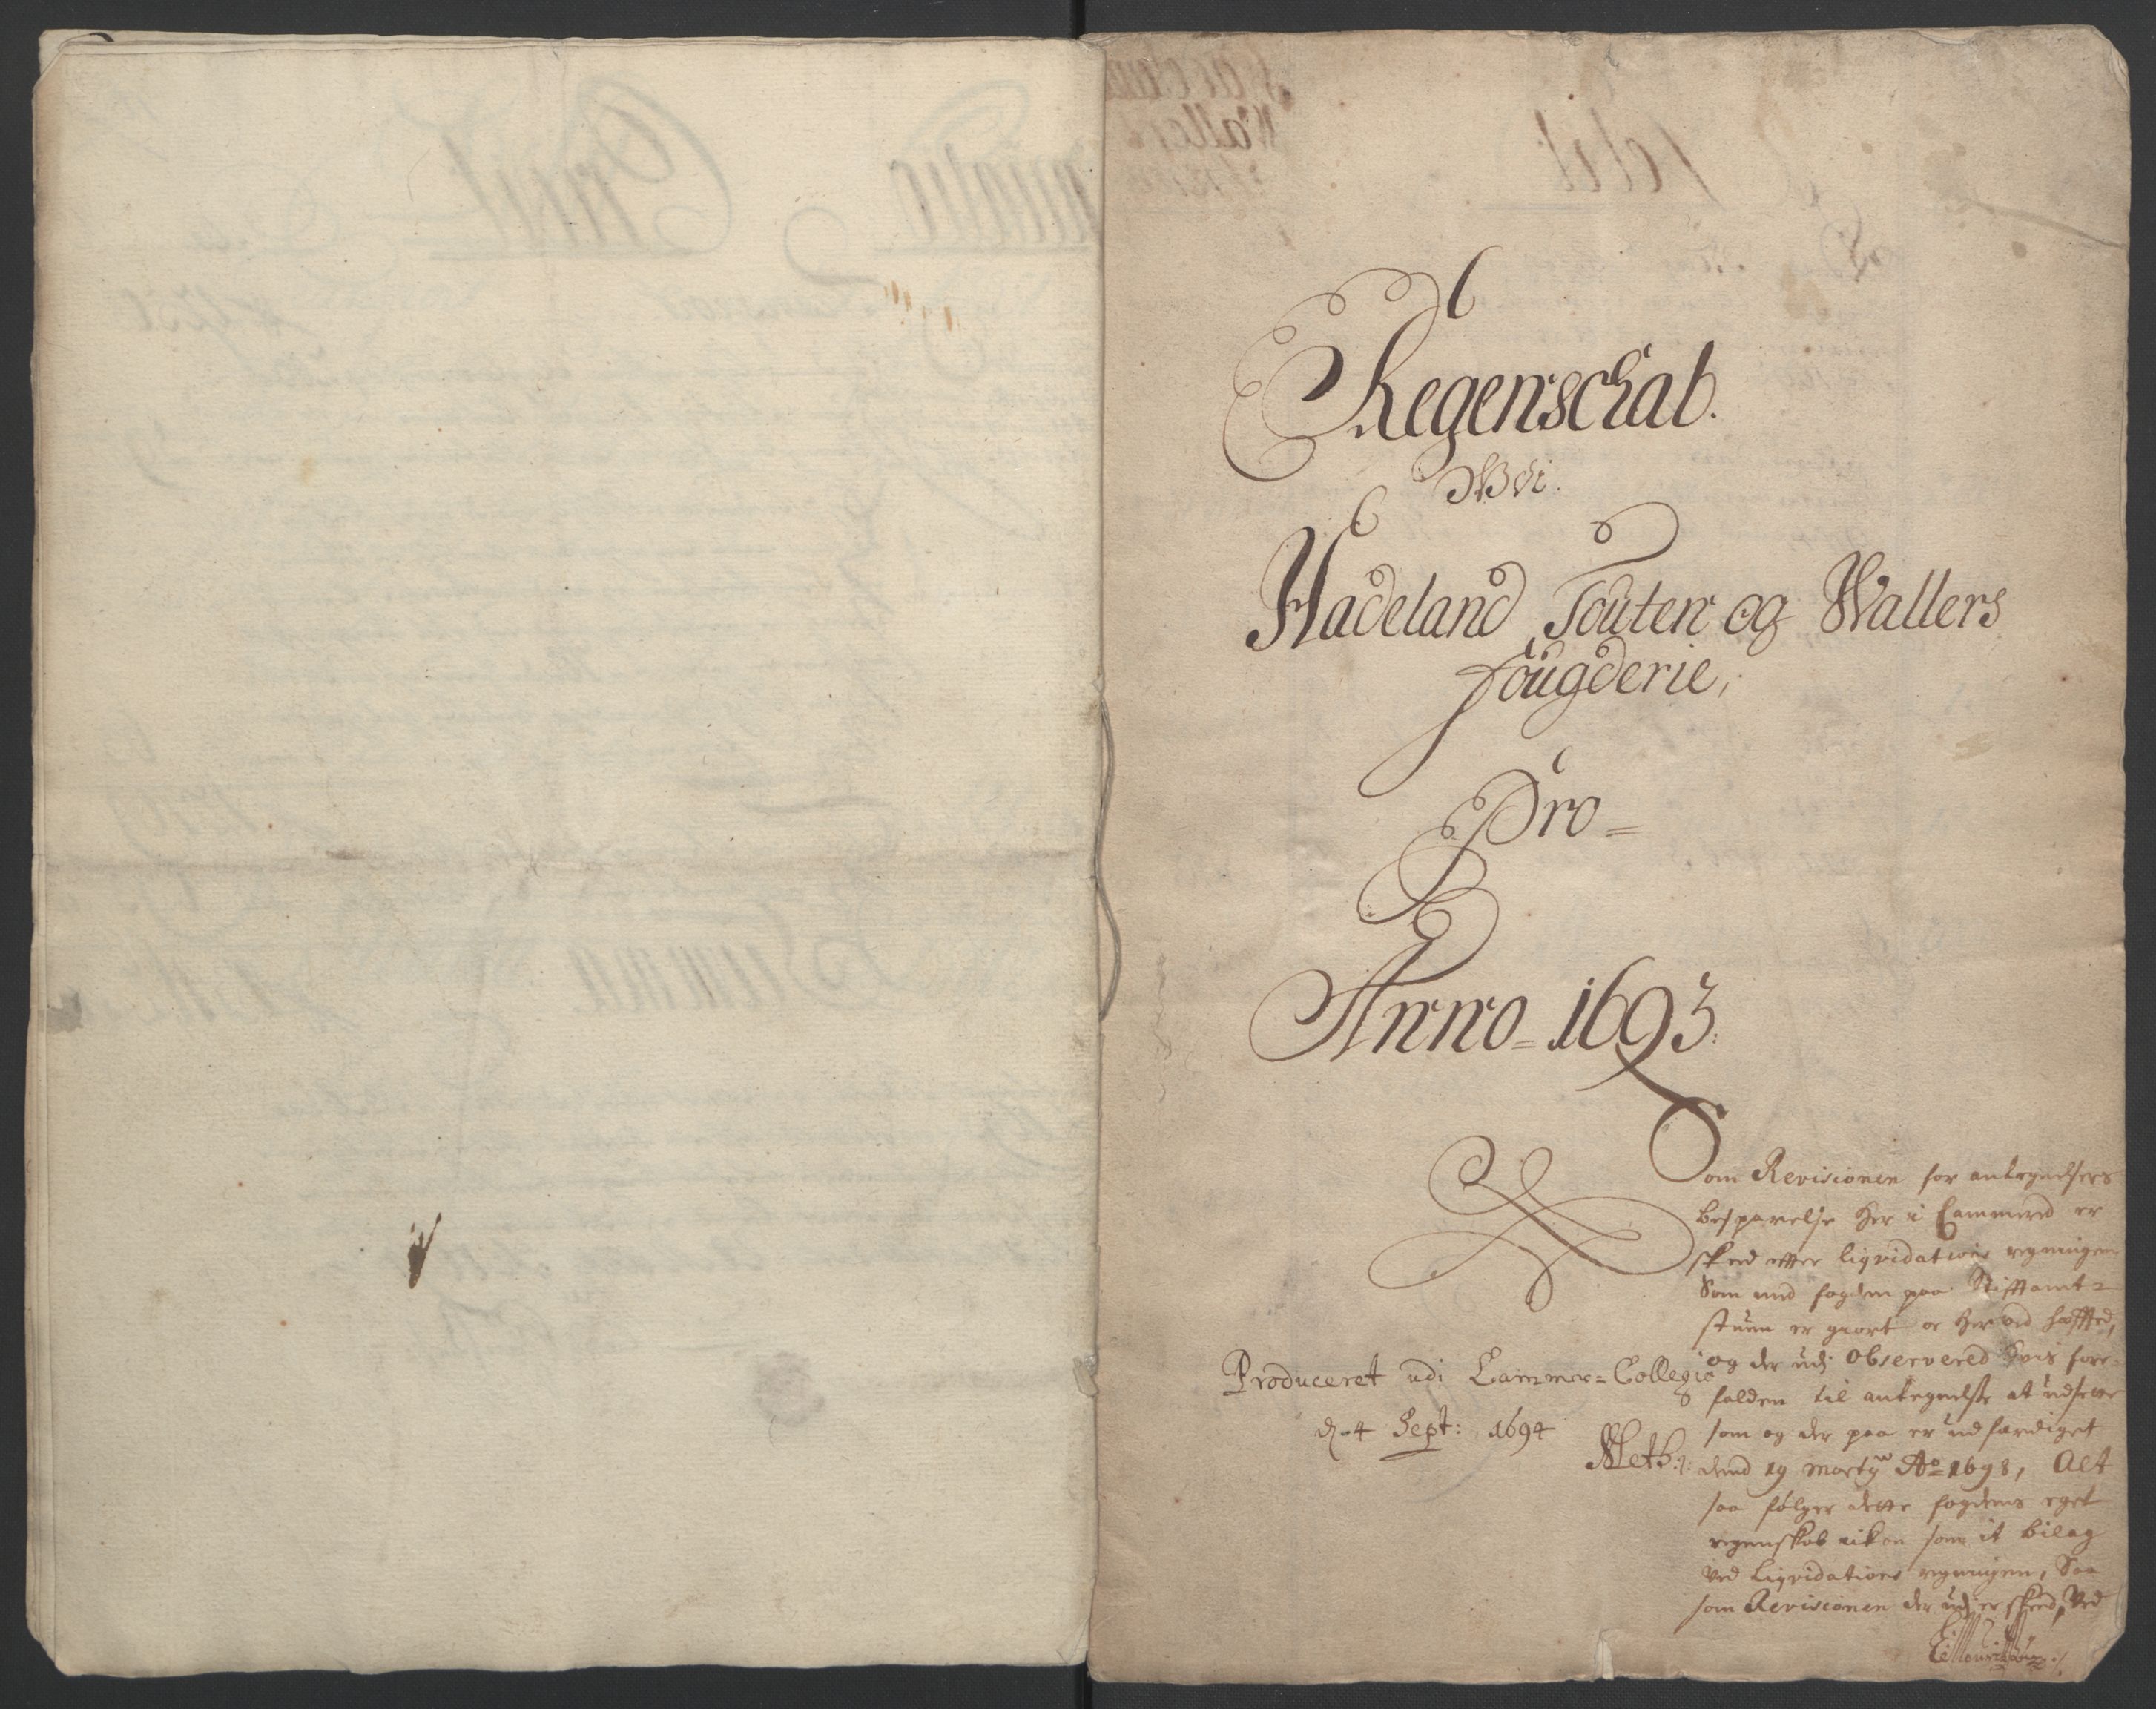 Regenschab.
Udi
Hadeland Touten og Wallers
fougderie,
Pro=
Anno=1693:
Som Revisionen for antegnelsers
besparelse her i Cammered er
skeed efter liqvidations regningen
Som med fogden paa Stiftamt=
stuen er giort oc her ved hoffed,
og der udj Observered hvis fore=
falden til antegnelse at udsette
som og der paa er udfærdiget
dend 19 Martij Ao 1698, Alt
saa følger dette fogdens eget
regenskab som it bilag
ved Liqvidations regningen, Saa
som Revisionen der udj er skeed, Ved
Produceret udi Cammer=Collegio
d. 4 Sept: 1694